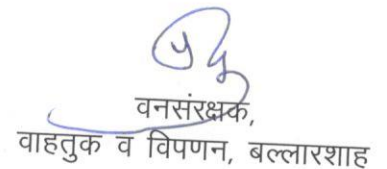 वनसंरक्षक,
वाहतुक व विपणन, बल्लारशाह